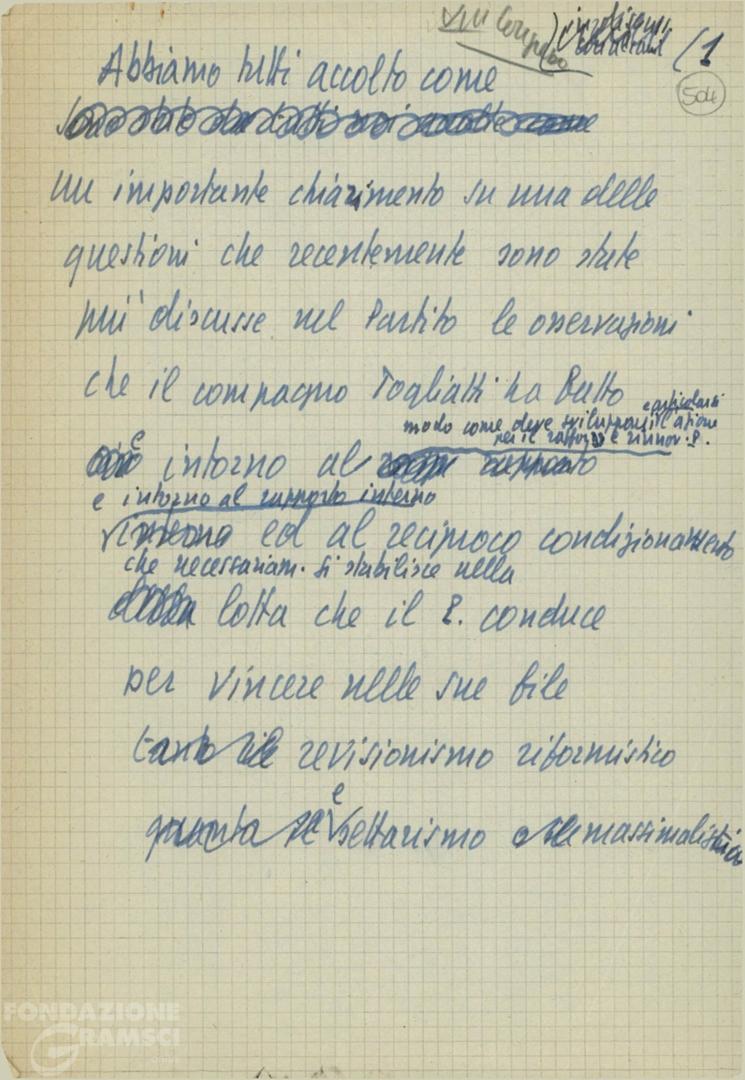 VIII Congresso
(1
504
Abbiamo tutti accolto come
un importante chiarimento su una delle
questioni che recentemente sono state
più discusse nel Partito le osservazioni
che il compagno Togliatti ha fatto
e articolarsi
modo come deve svilupparsi l'azione
per il rafforz. e rinnov. P.
e
intorno al
e intorno al rapporto interno
interno ed al reciproco condizionamento
che necessariam. si stabilisce nella
della lotta che il P. conduce
per vincere nelle sue file
tanto il revisionismo riformistico
e
quanto il settarismo massimalistico
FONDAZIONE
GRAMSCI